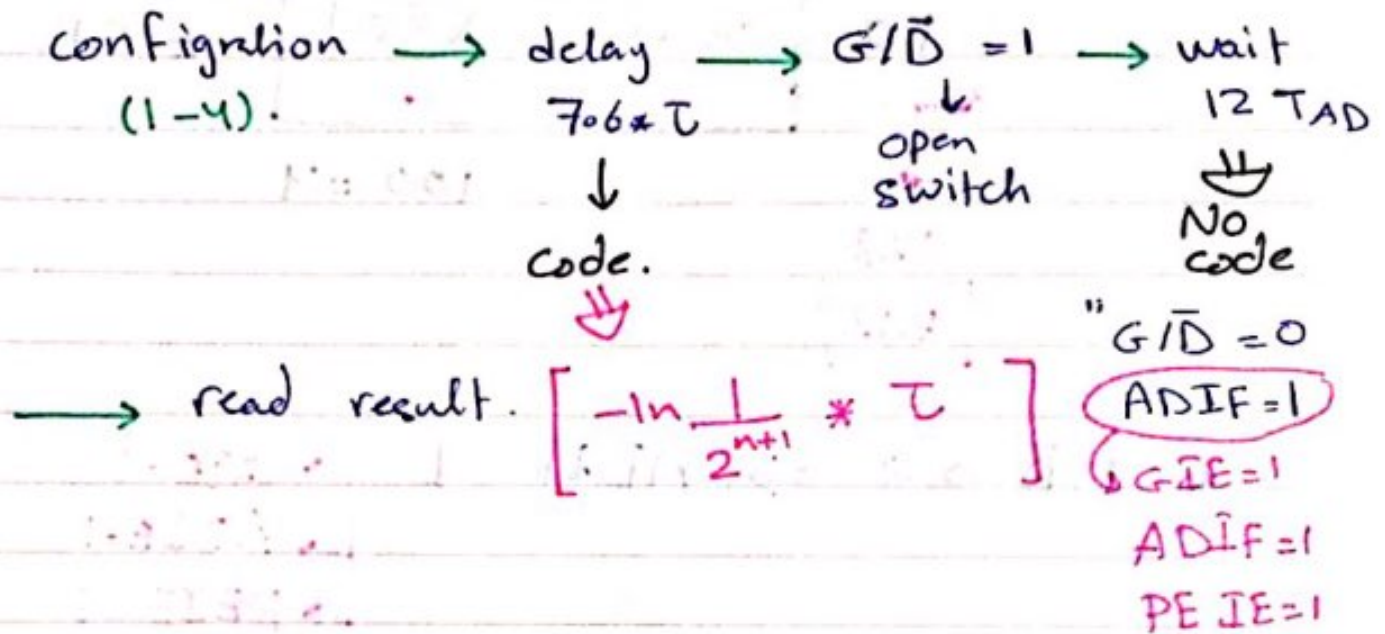 configration → delay → G/D̄ = 1 → wait
(1-4). 7.6 * τ ↓ 12 TAD
↓ open ⇓
switch No
code. code
⇓ "G/D̄ = 0
→ read result. [ -ln 1/2^(n+1) * τ ] ADIF=1
↳ GIE=1
ADIF=1
PEIE=1